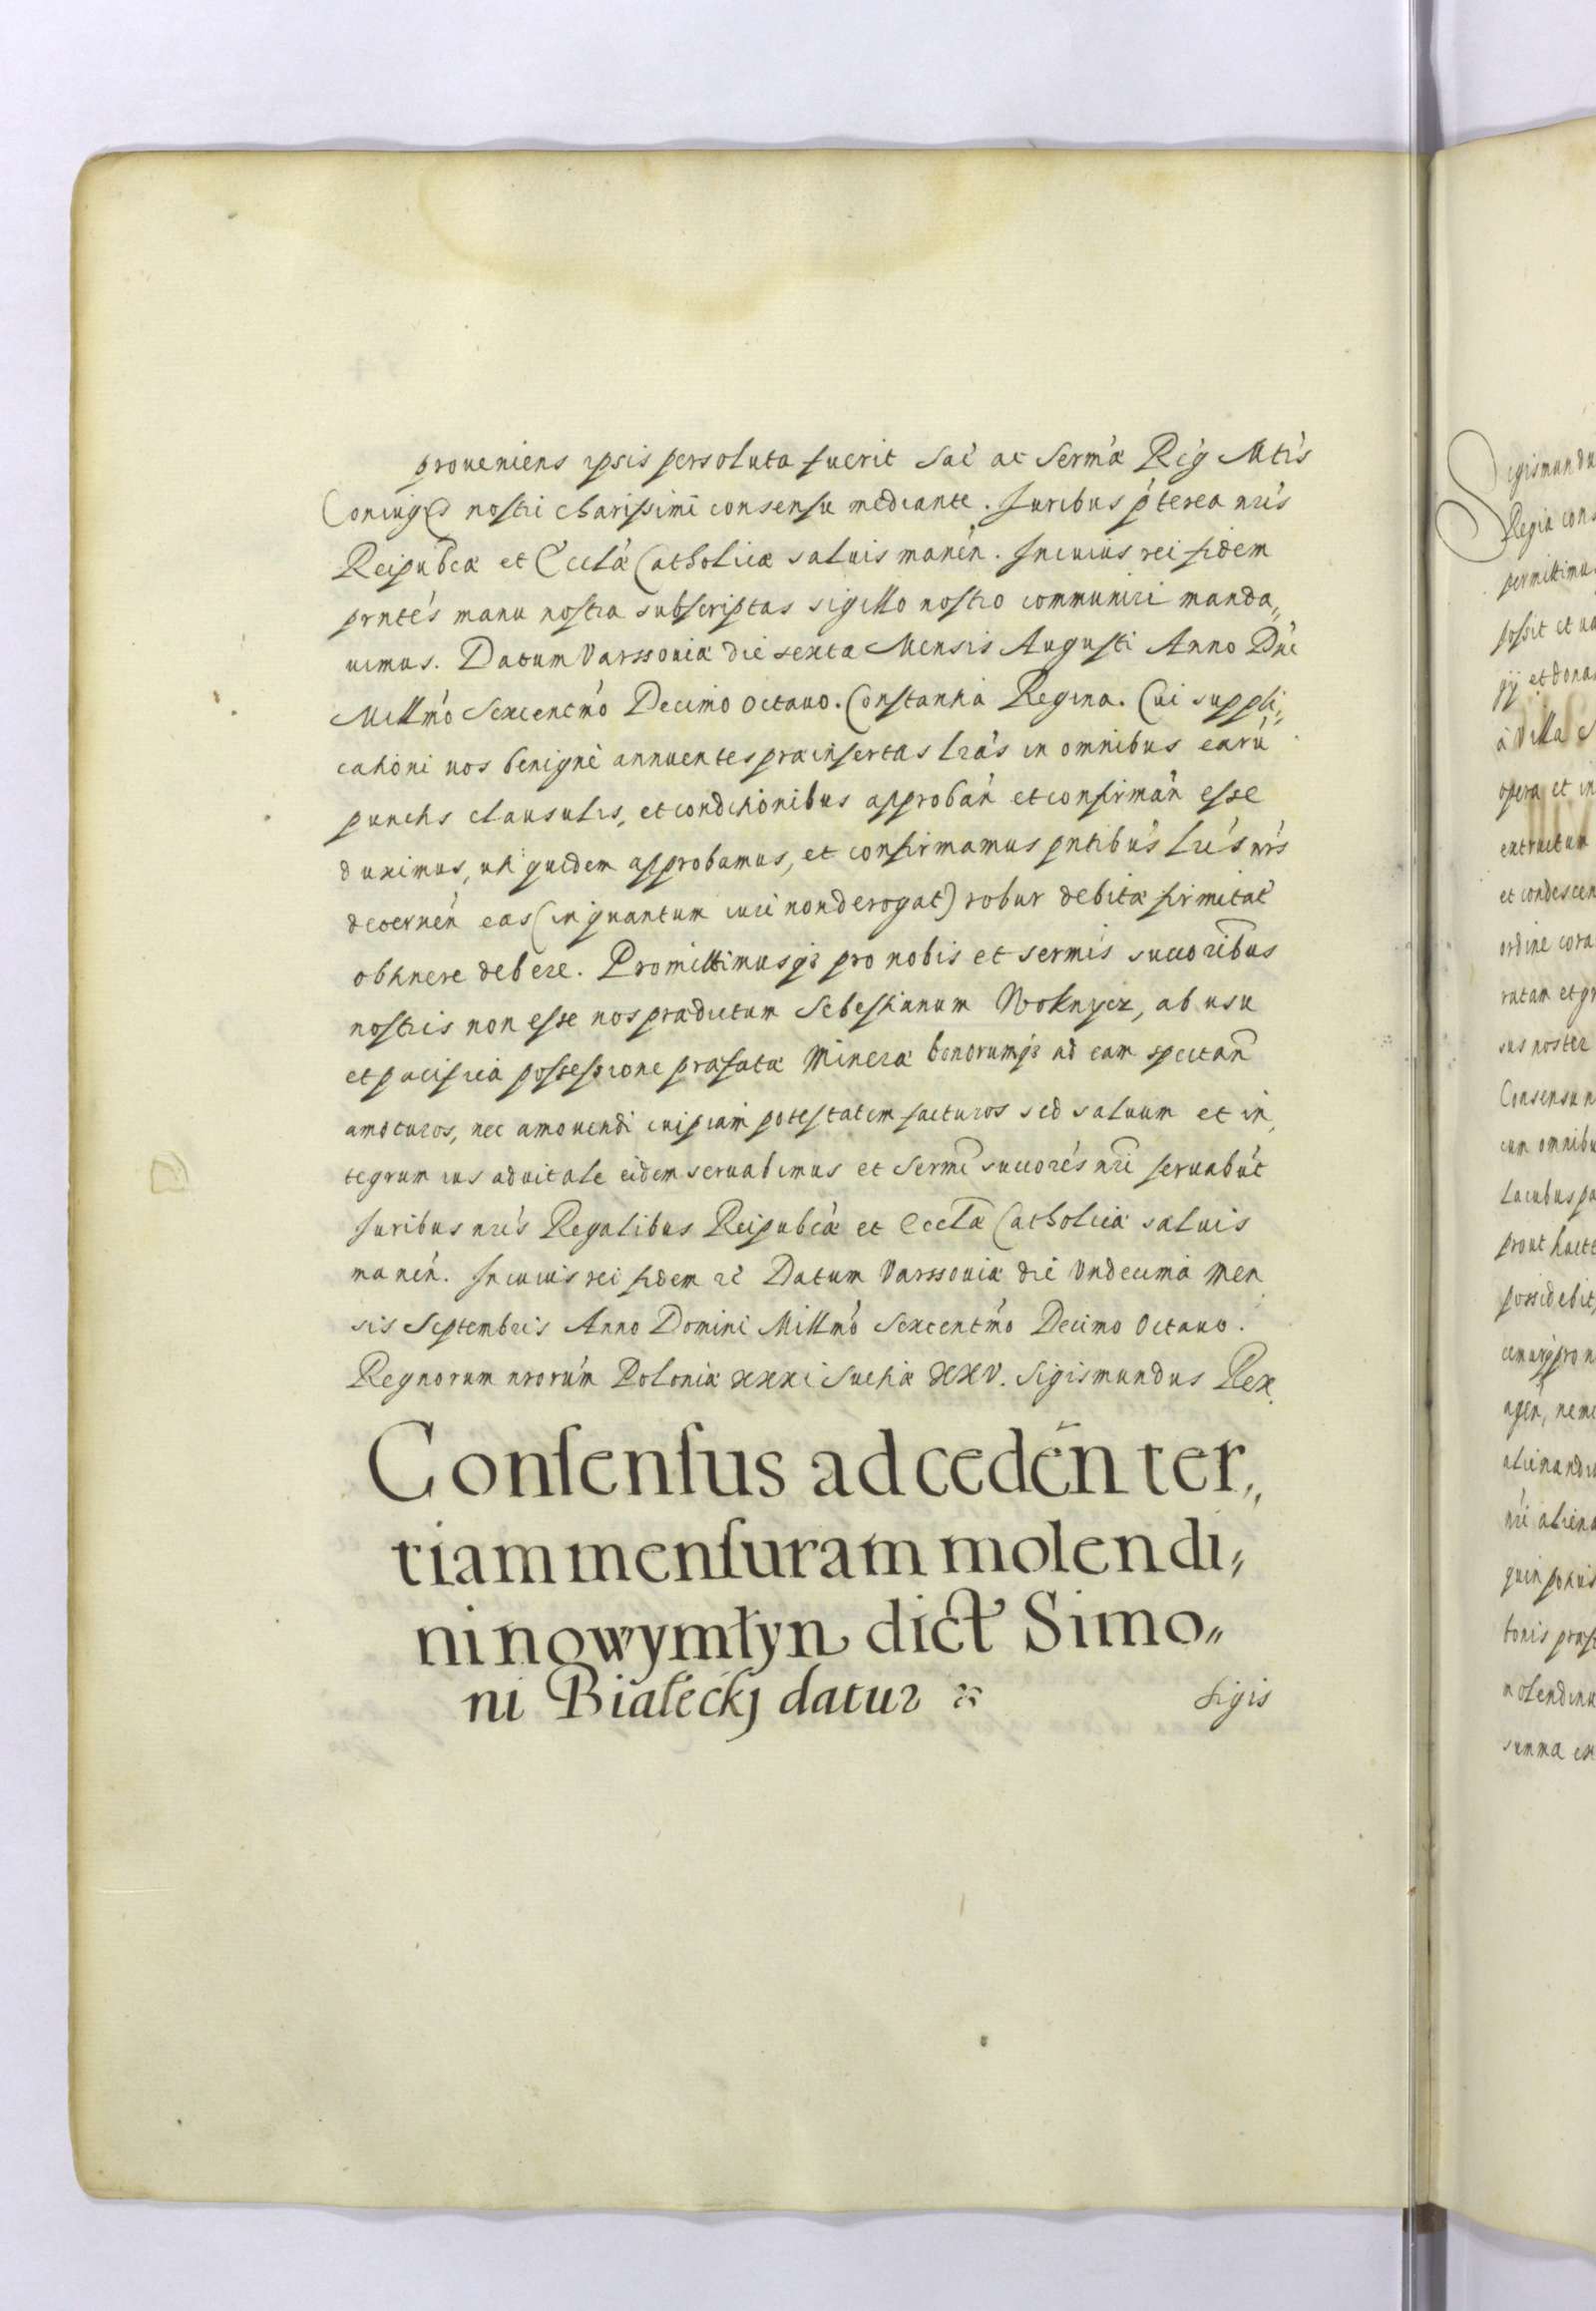 proueniens ipsis persoluta fuerit Sac̄ ac Serm̄a Reḡ Mtis
Coniugis nostri charissimi consensu mediante. Juribus p̄terea nr̄is
Reipub̄ca et Eccl̄a Catholica saluis manen̄. In cuius rei fidem
prn̄tes manu nostra subscriptas sigillo nostro communiri manda„
uimus. Datum Varssouiæ die sexta Mensis Augusti Anno Dn̄i
Millm̄o Sexcentm̄o Decimo octauo. Constantia Regina. Cui suppli„
cationi nos benignè annuentes præinsertas lr̄as in omnibus earū
punctis clausulis, et conditionibus approban̄ et confirman̄ esse
duximus, uti quidem approbamus, et confirmamus pn̄tibus lr̄is nr̄is
decernen̄ eas (in quantum iuri non derogat) robur debitæ firmitat̄
obtinere debere. Promittimusq₃ pro nobis et sermis succor̄ibus
nostris non esse nos prædictum Sebestianum Woknycz, ab usu
et pacifica possessione præfatæ Mineræ bonorumq₃ ad eam spectan̄
amoturos, nec amouendi cuipiam potestatem facturos sed saluum et in„
tegrum ius aduitale eidem seruabimus et Sermi succores nr̄i seruabūt
Juribus nr̄is Regalibus Reipub̄cæ et Eccl̄æ Catholicæ saluis
manen̄. In cuius rei fidem &c̄ Datum Varssouiæ die Vndecima Men„
sis Septembris Anno Domini Millm̄o Sexcentm̄o Decimo Octauo.
Regnorum nrorum̄ Poloniæ XXXI Suetiæ XXV. Sigismundus Rex.
Conſenſus ad ceden̄ ter„
tiam menſuram molendi„
ni nowymłyn dict Simo„
ni Białeckj datur
Sigis
Sigismundu
Regia cons
permittimu
possit et
et dona
à Villa
opera et in
extructum
et condescen
ordine cora
ratam et gr
sus noster
Consensu n
cum omnibu
lacubus pa
prout haec
possidebit
pro n
agen̄, nem
alienandi
nr̄i aliena
quin potius
bonis præf
molendinu
summa ex